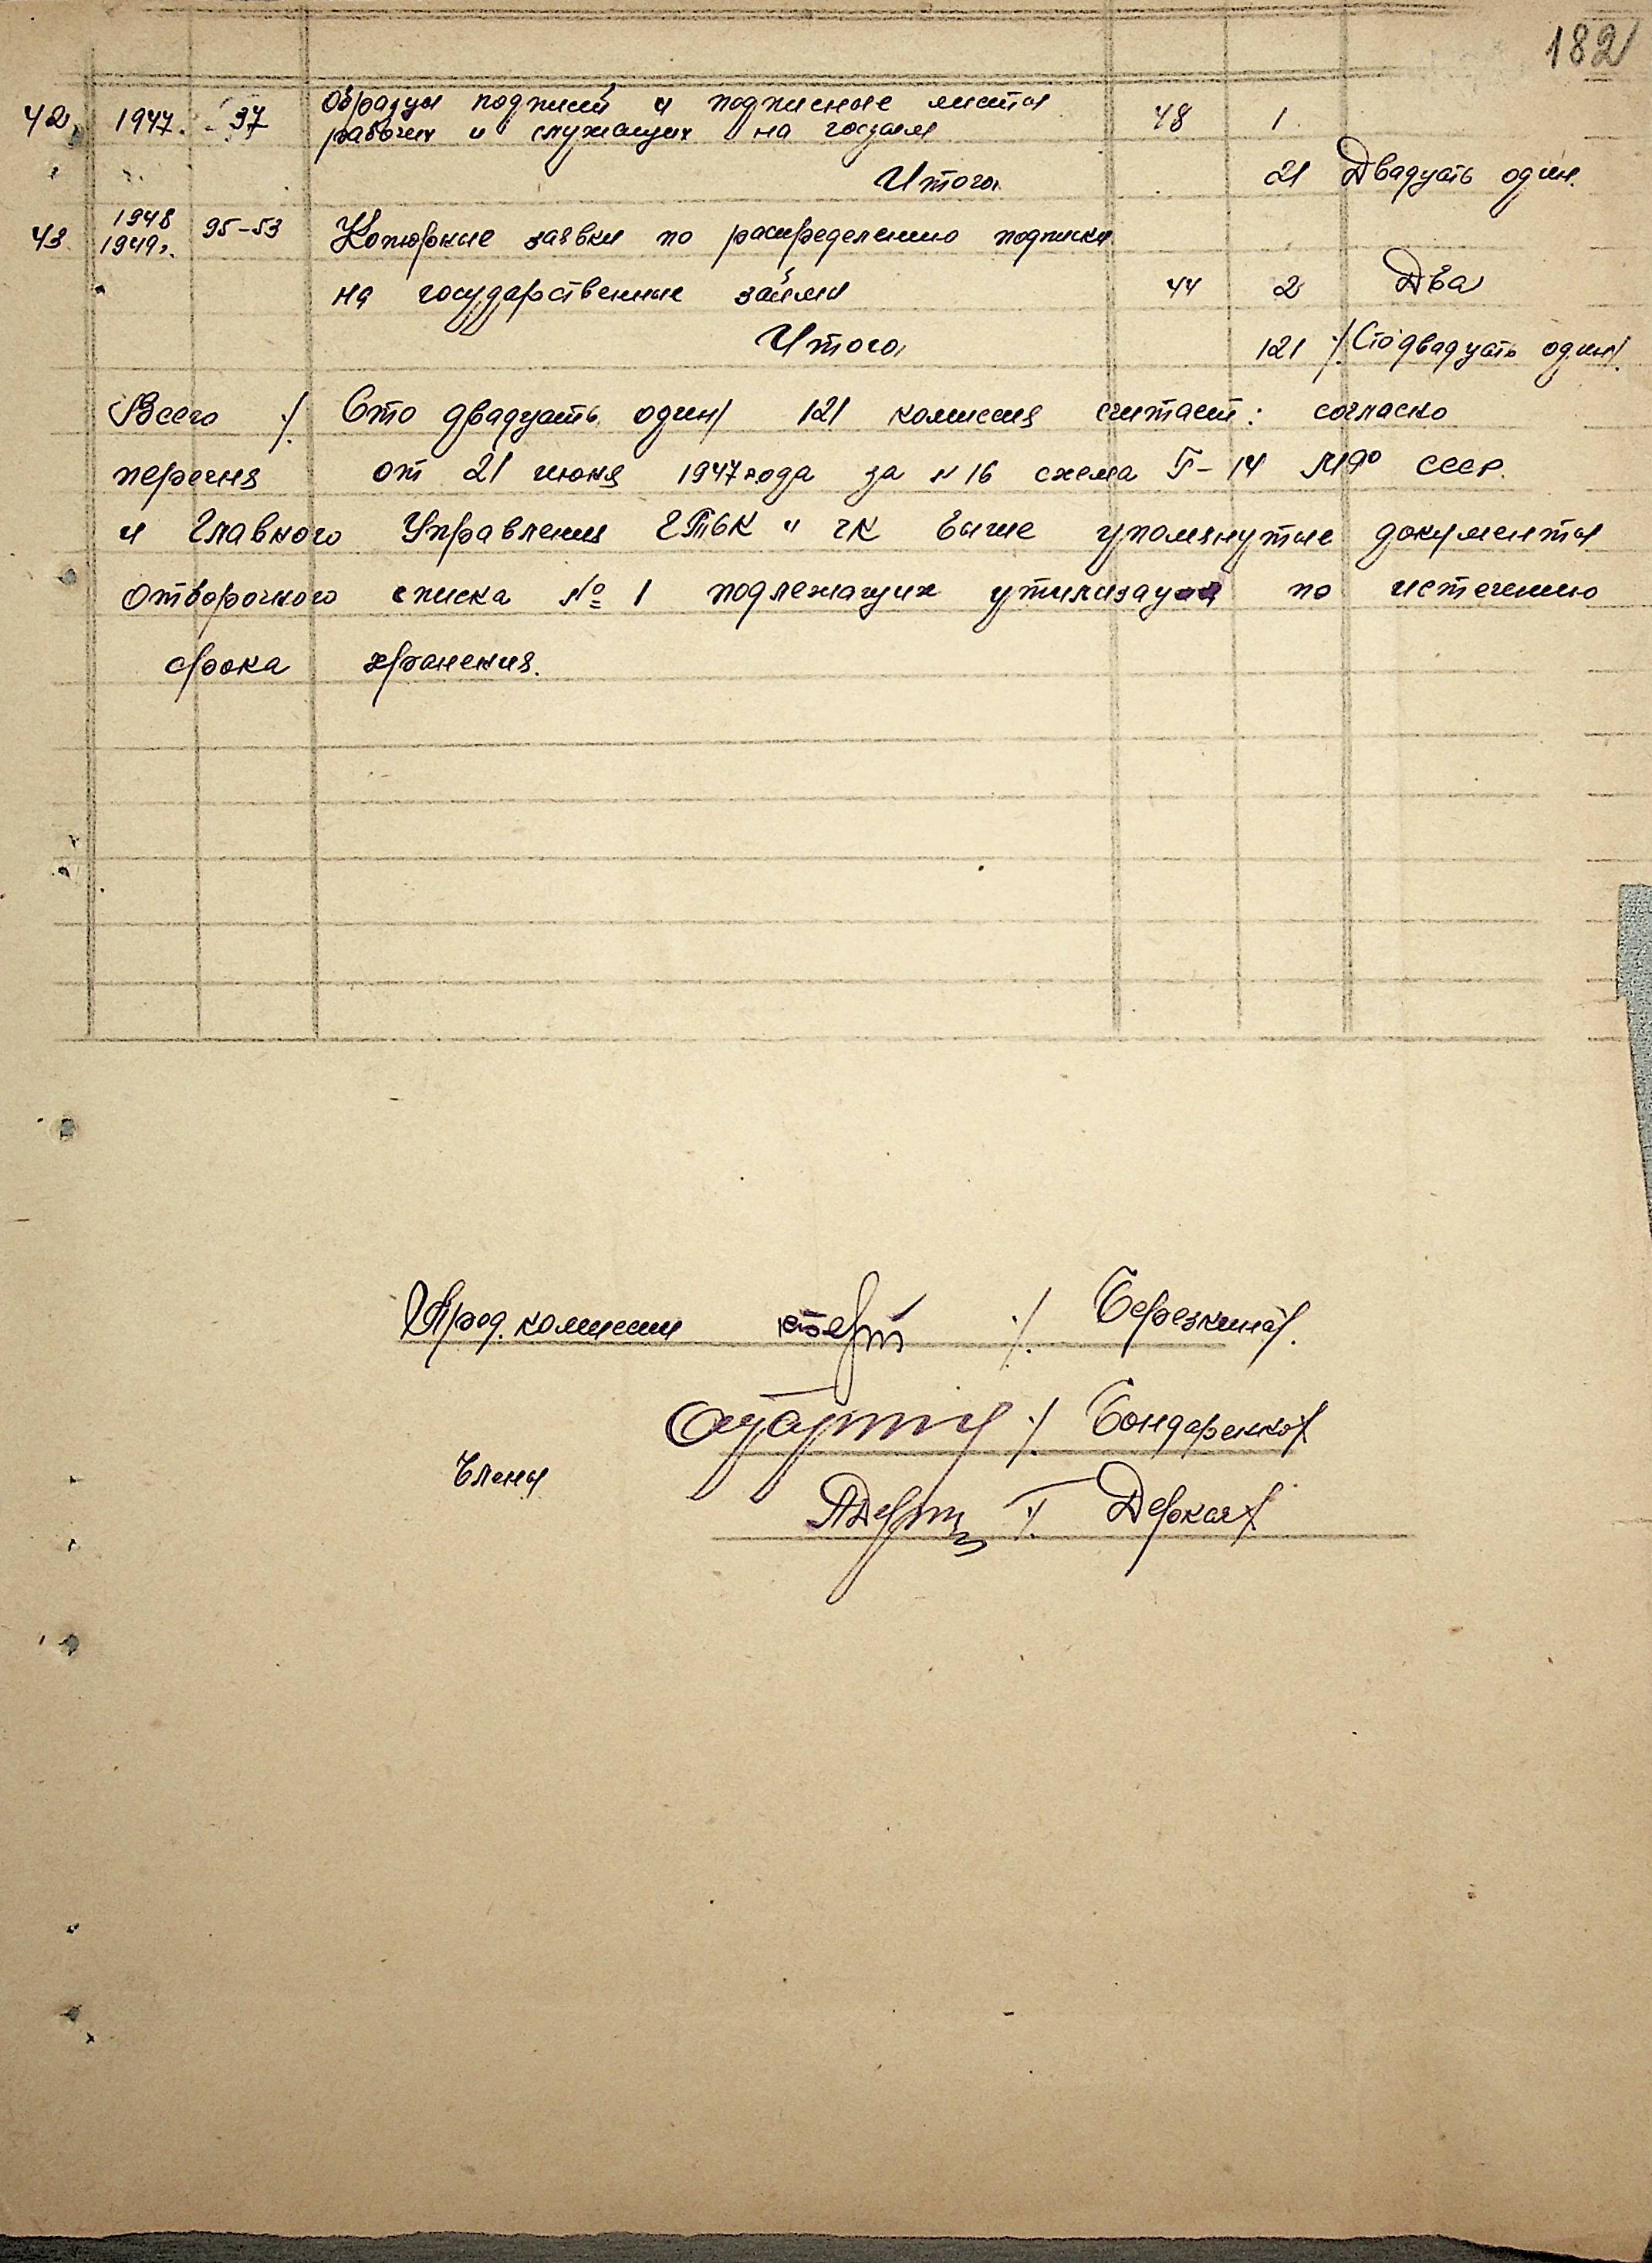 182
42 1947. 37 Образцы подписей и подписные листы
рабочих и служащих на госзаем 48 1
Итого 21 Двадцать один.
43 1948
1949г. 95-53 Купюрные заявки по распределению подписки
на государственные займы 44 2 Два
Итого 121 /Сто двадцать один/.
Всего /. Сто двадцать один/ 121 комиссия считает: согласно
перечня от 21 июня 1947 года за № 16 схема Г-14 СССР.
и Главного Управления и ЧК выше упомянутые документы
отборочного списка № 1 подлежащих утилизации по истечению
срока хранения.
Пред. комиссии /. Березкина/.
/. Бондаренко/
Члены
/. Деркач/